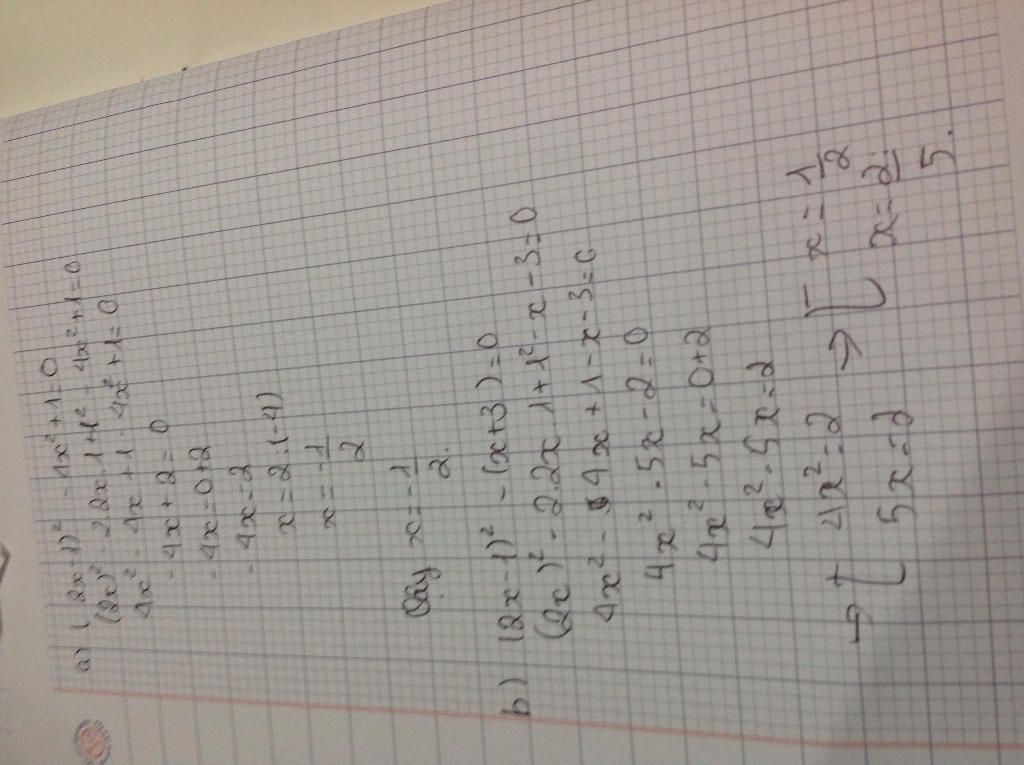 a) (2x-1)² - 4x²+1=0
(2x)² - 2.2x.1+1² - 4x²+1=0
4x² - 4x+1 - 4x²+1=0
- 4x+2=0
- 4x=0+2
- 4x=2
x=2:(-4)
x=-1/2
Vậy x=-1/2.
b) (2x-1)² - (x+3)=0
(2x)² - 2.2x.1+1²-x-3=0
4x² - 4x+1-x-3=0
4x² - 5x-2=0
4x² - 5x=0+2
4x² - 5x=2
→ [ 4x²=2 → [ x=1/2
5x=2 x=2/5.